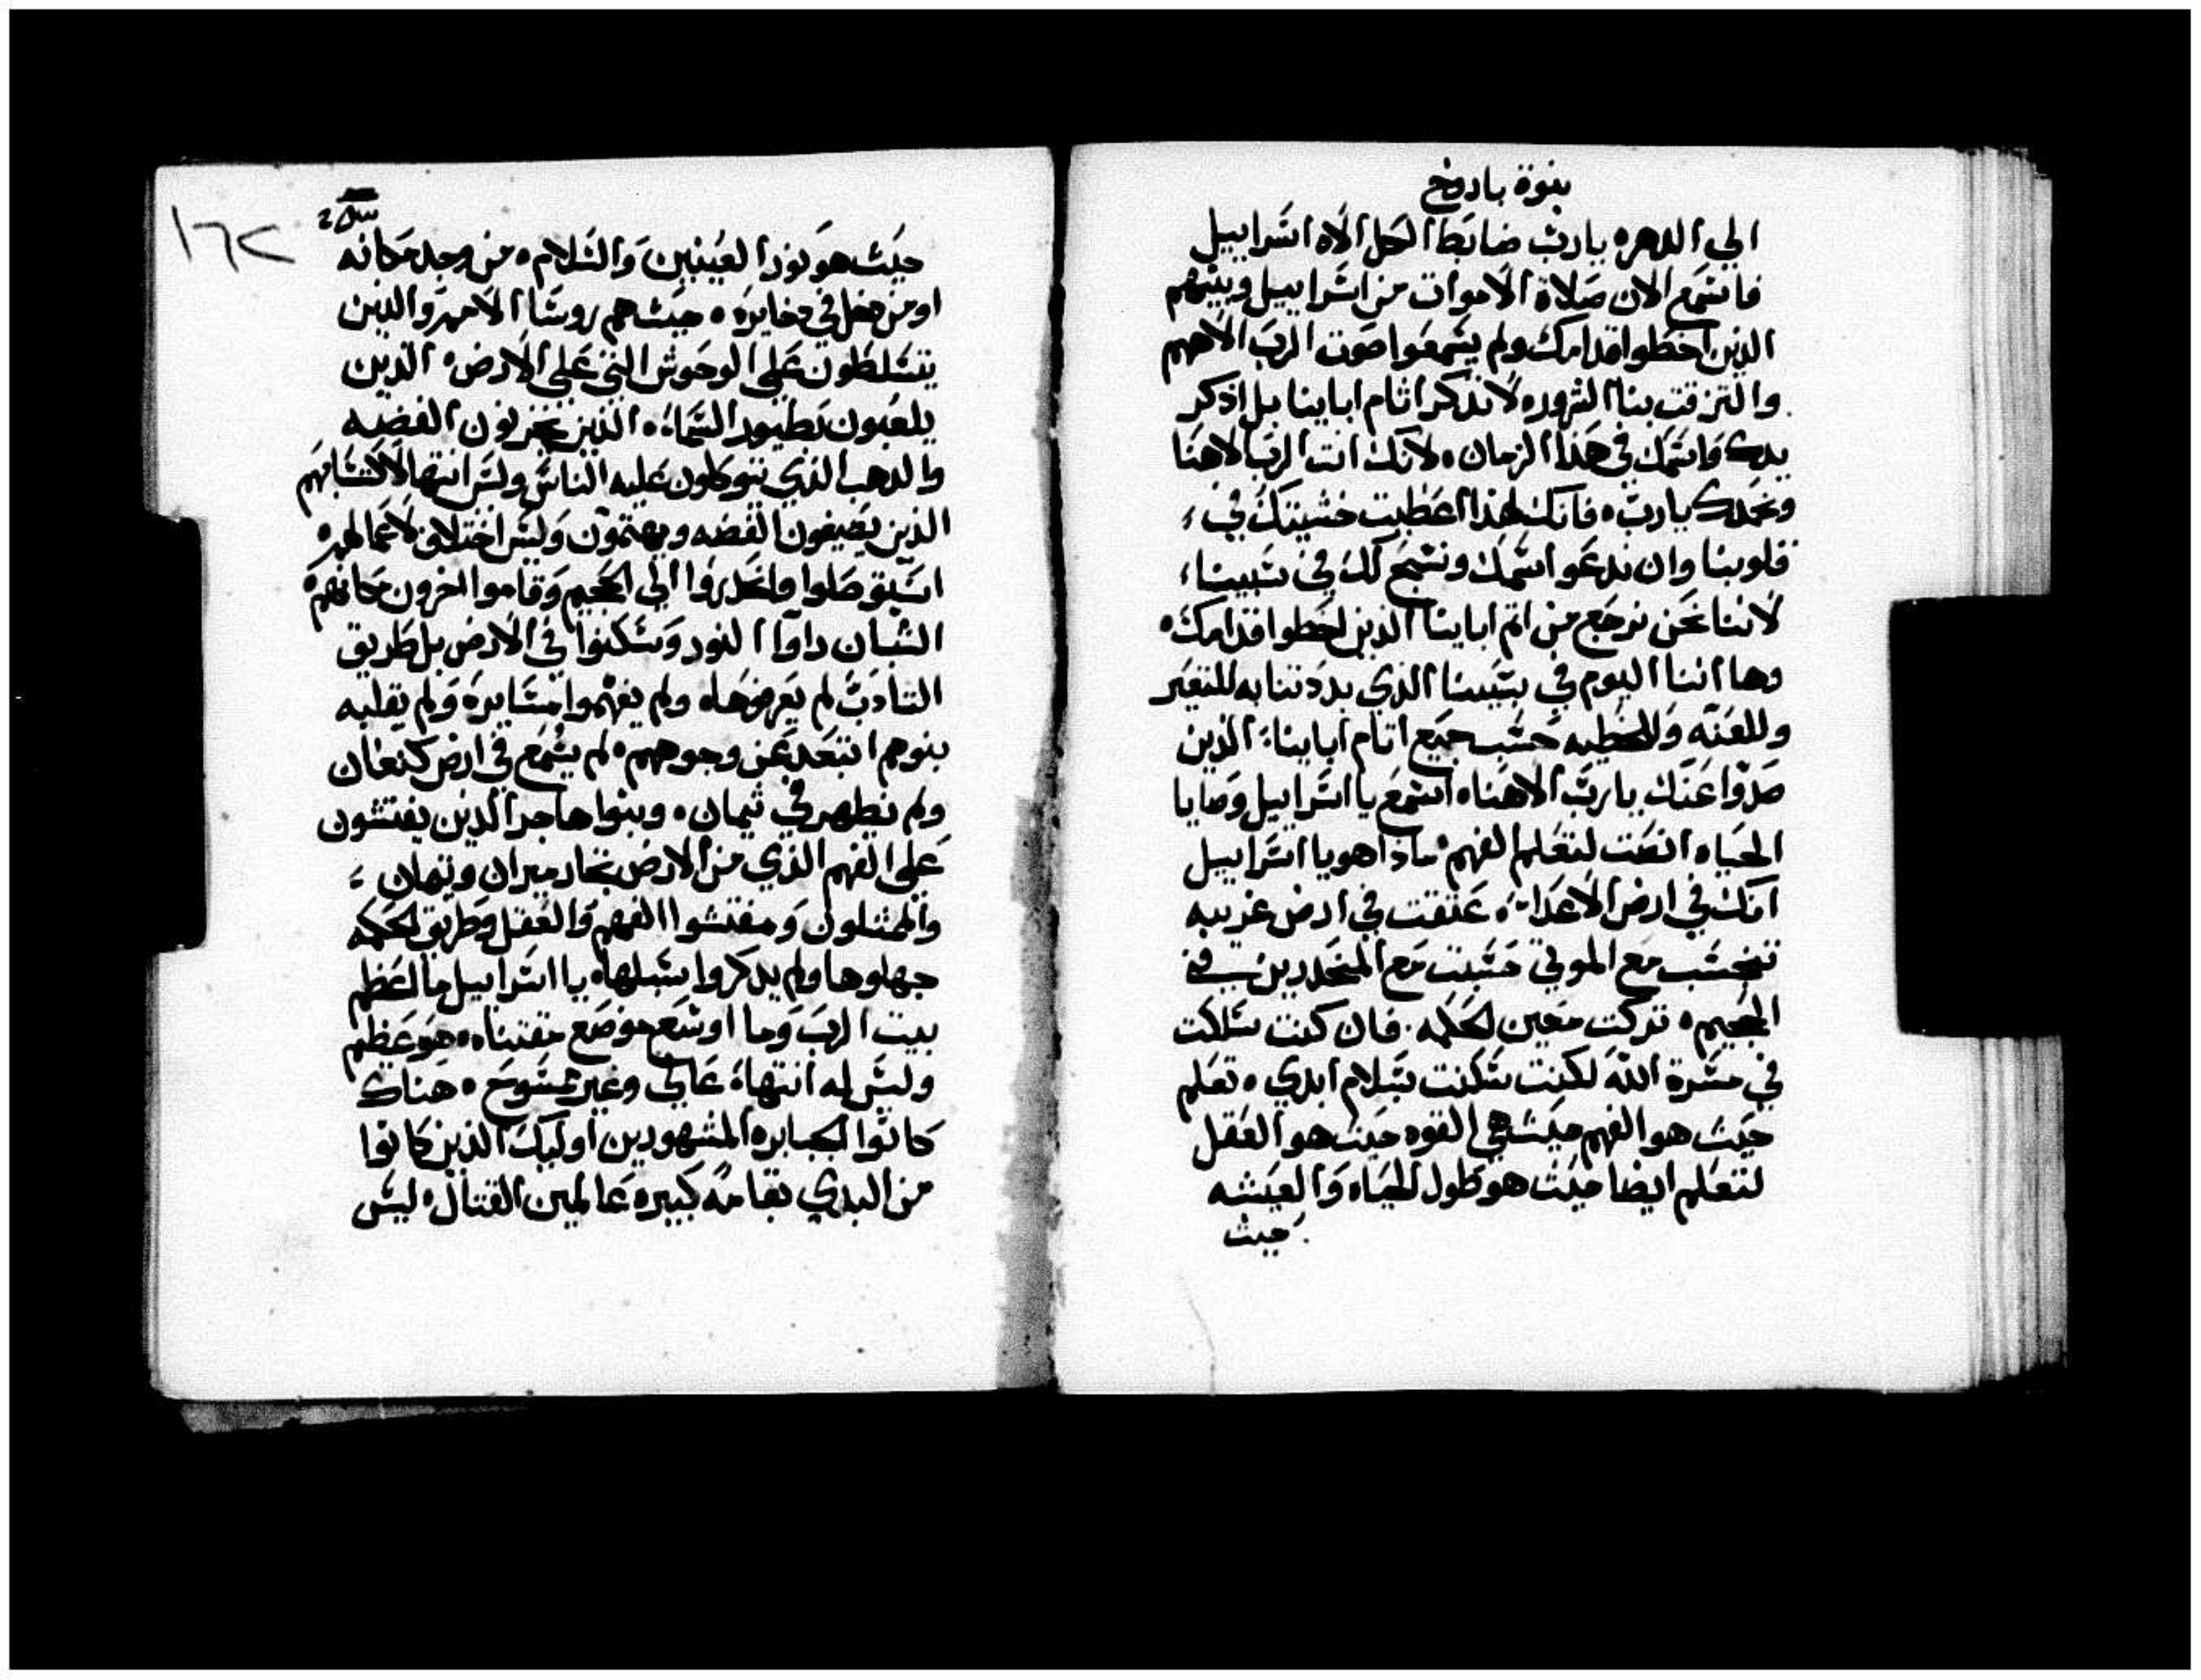 بنوة باروخ
الي الدهره يارب ضابط الكل الاه اسراييل
فاسمع الان صلاة الاموات من اسراييل وبينهم
الذين اخطوا قدامك ولم يسمعوا صوت الرب الاههم
والتزقت بنا الشروره لا تذكر اثام اباينا بل اذكر
يدك واسمك في هذا الزمان ه لانك انت الرب الاهنا
ونحمدك يارب ه فانك لهذا اعطيت خشيتك في
قلوبنا وان ندعو اسمك ونسبح لك في سبينا
لاننا نحن نرجع من اثم اباينا الذين اخطوا قدامك ه
وها اننا اليوم في سبينا الذي بددتنا به للتعير
وللعنه وللخطيه حسب جميع اثام اباينا الذين
صدوا عنك يارب الاهنا ه اسمع يا اسراييل وصايا
الحياه انصت لتعلم الفهم ه ماذا هو يا اسراييل
انك في ارض الاعداء ه عتقت في ارض غريبه
تنجست مع الموتي حسبت مع المنحدرين في
الجحيم ه تركت معين الحكمه ه فان كنت سلكت
في مسرة الله لكنت سكنت بسلام ابدي ه تعلم
حيث هو الفهم حيث هي القوه حيث هو العقل
لتعلم ايضا حيث هو طول الحياه والعيشه
حيث
١٦٢
حيث هو نور العينين والسلام ه من وجد مكانه
او من دخل في دخايره ه حيث هم روسا الامم والذين
يتسلطون علي الوحوش التي علي الارض ه الذين
يلعبون بطيور السماء ه الذين يخزنون الفضه
والدهب الذي تتوكلون عليه الناس وليس انتها لاكتسابهم
الذين يصيغون الفضه ويهتمون وليس اختلاق لاعمالهم ه
استوصلوا وانحدروا الي الجحيم وقاموا اخرون مكانهم ه
الشبان راوا النور وسكنوا في الارض بل طريق
التادب لم يعرفوها ه ولم يفهموا مسايره ولم يقلبه
بنوهم ابتعد عن وجوههم ه لم يسمع في ارض كنعان
ولم تظهر في ثيمان ه وبنوا هاجر الذين يفتشون
علي الفهم الذي من الارض تجار ميران وتيمان
والمتثلون ومفتشوا الفهم والعقل وطريق الحكمه
جهلوها ولم يدكروا سبلها ه يا اسراييل ما اعظم
بيت الرب وما اوسع موضع مقتناه ه هو عظيم
وليس له انتهاء عالي وغير ممسوح ه هناك
كانوا الجبابره المشهورين اوليك الذين كانوا
من البدي بقامه كبيره عالمين القتال ه ليس